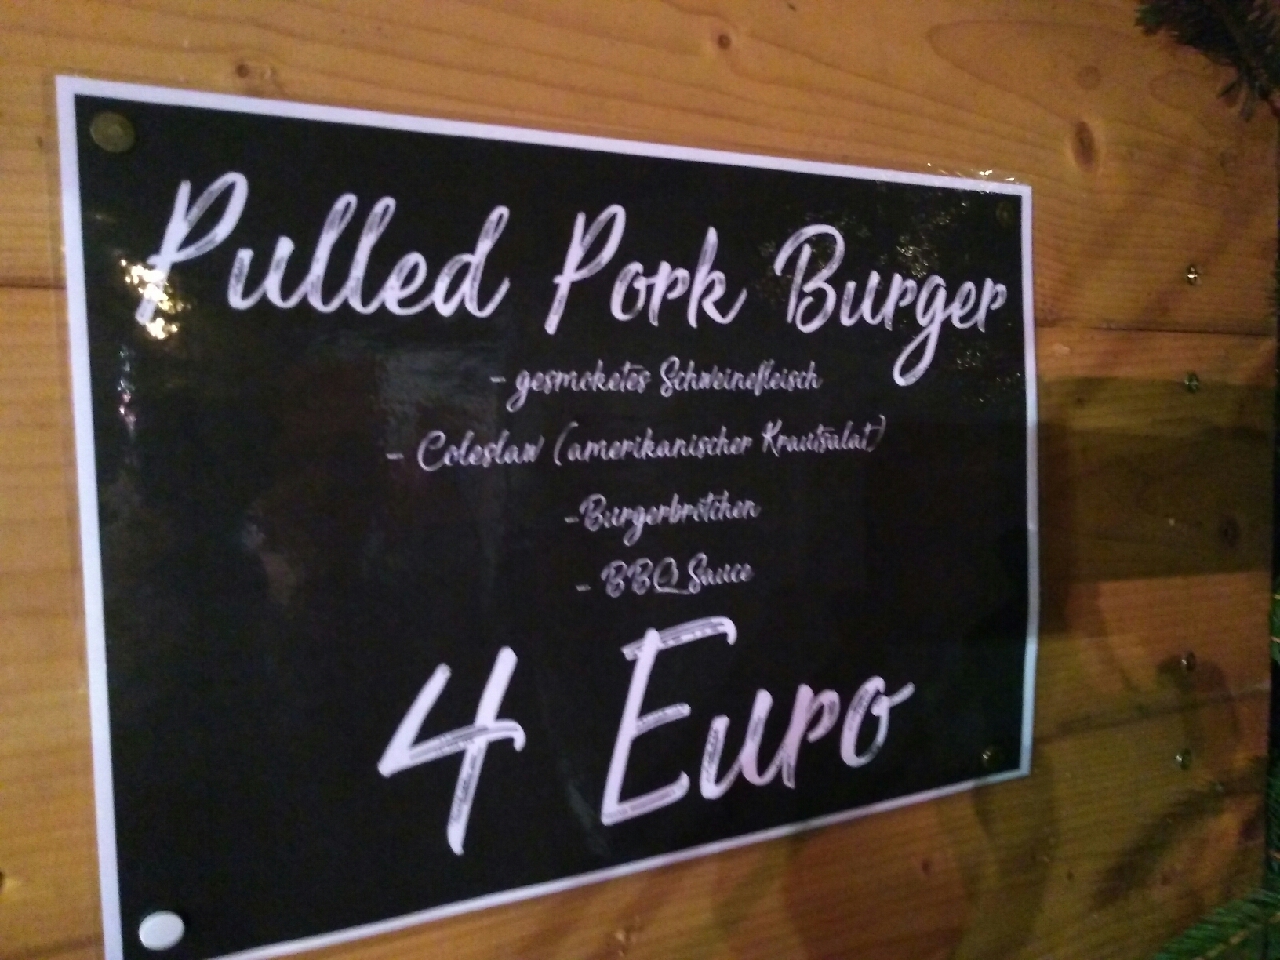 Pulled Pork Burger
- gesmoketes Schweinefleisch
- Coleslaw (amerikanischer Krautsalat)
-Burgerbrötchen
- BBQ Sauce
4 Euro